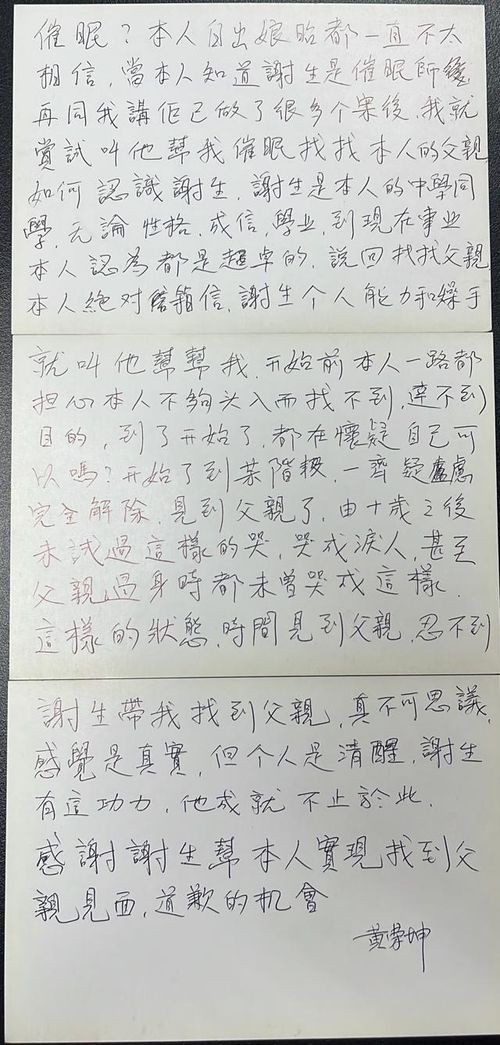 催眠？本人自出娘胎都一直不太
相信，當本人知道謝生是催眠師後
再同我講佢已做了很多个案後，我就
嘗試叫他幫我催眠找找本人的父親
如何認識謝生，謝生是本人的中學同
學，无論性格，成信，學业，到現在事业
本人認為都是超卓的，說回找找父親
本人絕对信，謝生个人能力和操手
就叫他幫幫我，开始前本人一路都
担心本人不夠头入而找不到，達不到
目的，到了开始了，都在懷疑自己可
以嗎？开始了到某階段，一齊疑慮
完全解除，見到父親了，由十歲之後
未試過這樣的哭，哭成淚人，甚至
父親過身時都未曾哭成這樣，
這樣的狀態，時間見到父親，忍不到
謝生帶我找到父親，真不可思議，
感覺是真實，但个人是清醒，謝生
有這功力，他成就不止於此，
感謝謝生幫本人實現找到父
親見面，道歉的机會
黃榮坤